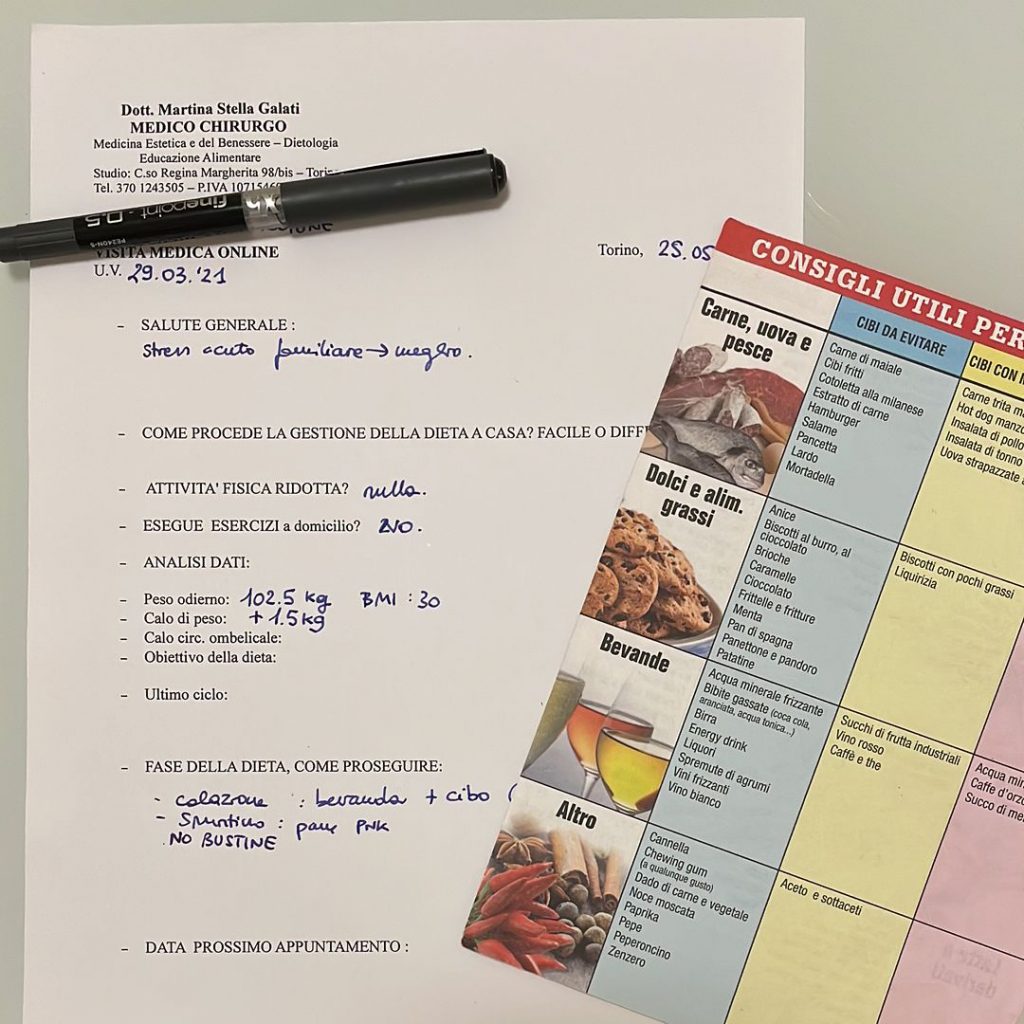 Dott. Martina Stella Galati
MEDICO CHIRURGO
Medicina Estetica e del Benessere – Dietologia
Educazione Alimentare
Studio: C.so Regina Margherita 98/bis – Torin
Tel. 370 1243505 – P.IVA 1071546
finepoint - 0.5
PE240N-5
VISITA MEDICA ONLINE
Torino, 25.05
U.V. 29.03.'21
- SALUTE GENERALE :
stress acuto familiare → meglio.
- COME PROCEDE LA GESTIONE DELLA DIETA A CASA? FACILE O DIFF
- ATTIVITA' FISICA RIDOTTA? nulla.
- ESEGUE ESERCIZI a domicilio? NO.
- ANALISI DATI:
- Peso odierno: 102.5 kg BMI : 30
- Calo di peso: +1.5kg
- Calo circ. ombelicale:
- Obiettivo della dieta:
- Ultimo ciclo:
- FASE DELLA DIETA, COME PROSEGUIRE:
- colazione : bevanda + cibo (
- Spuntino : pane PNK
. NO BUSTINE
- DATA PROSSIMO APPUNTAMENTO :
CONSIGLI UTILI PER
CIBI DA EVITARE
CIBI CON
Carne, uova e
pesce
Carne di maiale
Cibi fritti
Cotoletta alla milanese
Estratto di carne
Hamburger
Salame
Pancetta
Lardo
Mortadella
Carne trita m
Hot dog manzo
Insalata di pollo
Insalata di tonno
Uova strapazzate
Dolci e alim.
grassi
Anice
Biscotti al burro, al
cioccolato
Brioche
Caramelle
Cioccolato
Frittelle e fritture
Menta
Pan di spagna
Panettone e pandoro
Patatine
Biscotti con pochi grassi
Liquirizia
Bevande
Acqua minerale frizzante
Bibite gassate (coca cola,
aranciata, acqua tonica...)
Birra
Energy drink
Liquori
Spremute di agrumi
Vini frizzanti
Vino bianco
Succhi di frutta industriali
Vino rosso
Caffè e the
Acqua min
Caffe d'orzo
Succo di me
Altro
Cannella
Chewing gum
(a qualunque gusto)
Dado di carne e vegetale
Noce moscata
Paprika
Pepe
Peperoncino
Zenzero
Aceto e sottaceti